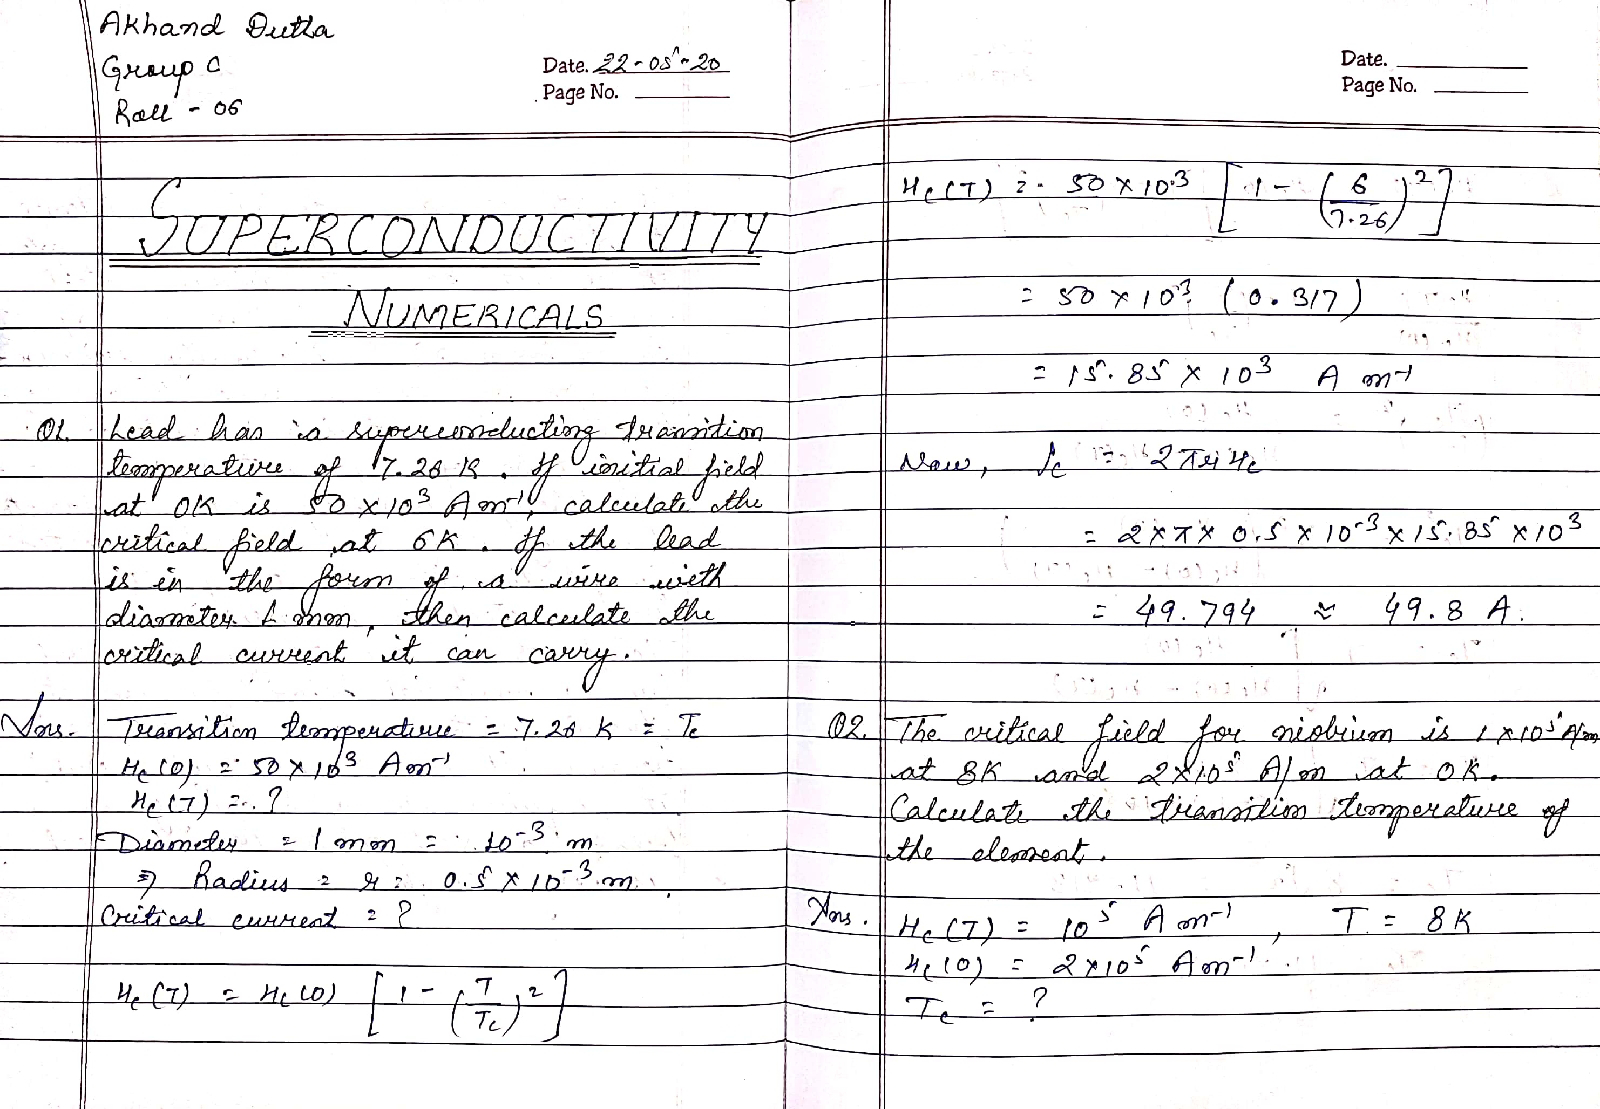 Akhand Dutta
Group C
Roll - 06
Date. 22-05-20
Page No.
SUPERCONDUCTIVITY
NUMERICALS
Q1. Lead has a superconducting transition
temperature of 7.26 K. If initial field
at 0K is 50 × 10³ Am⁻¹, calculate the
critical field at 6K. If the lead
is in the form of a wire with
diameter 1 mm, then calculate the
critical current it can carry.
Ans. Transition temperature = 7.26 K = Tc
Hc(0) = 50 × 10³ Am⁻¹
Hc(T) = ?
Diameter = 1 mm = 10⁻³ m
⇒ Radius = r = 0.5 × 10⁻³ m
Critical current = ?
Hc(T) = Hc(0) [1 - (T/Tc)²]
Date.
Page No.
Hc(T) = 50 × 10³ [1 - (6/7.26)²]
= 50 × 10³ (0.317)
= 15.85 × 10³ A m⁻¹
Now, Ic = 2πrHc
= 2 × π × 0.5 × 10⁻³ × 15.85 × 10³
= 49.794 ≈ 49.8 A.
Q2. The critical field for niobium is 1 × 10⁵ A/m
at 8K and 2 × 10⁵ A/m at 0K.
Calculate the transition temperature of
the element.
Ans. Hc(T) = 10⁵ A m⁻¹, T = 8K
Hc(0) = 2 × 10⁵ Am⁻¹.
Tc = ?